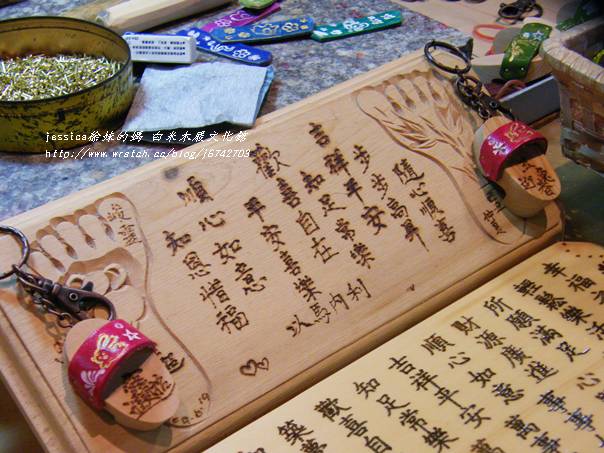 jessica徐妹的媽 白米木屐文化館
http://www.wretch.cc/blog/j6742703
隨心順喜
步步高昇
吉祥平安
知足常樂
歡喜自在
平安喜樂
以馬內利
順心如意
知恩惜福
幸福
輕鬆
所願滿足
財源廣進
順心如意
吉祥平安
知足常樂
歡喜自
萬事